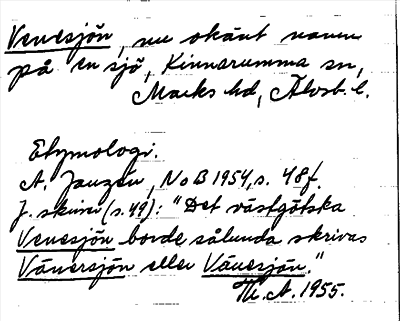 Venesjön, nu okänt namn
på en sjö, Kinnarumma sn,
Marks hd, Älvsb. l.
Etymologi.
A. Janzén, NoB 1954, s. 48f.
J. skriver (s. 49): "Det västgötska
Venesjön borde sålunda skrivas
Vänersjön eller Vänesjön."
M. A. 1955.